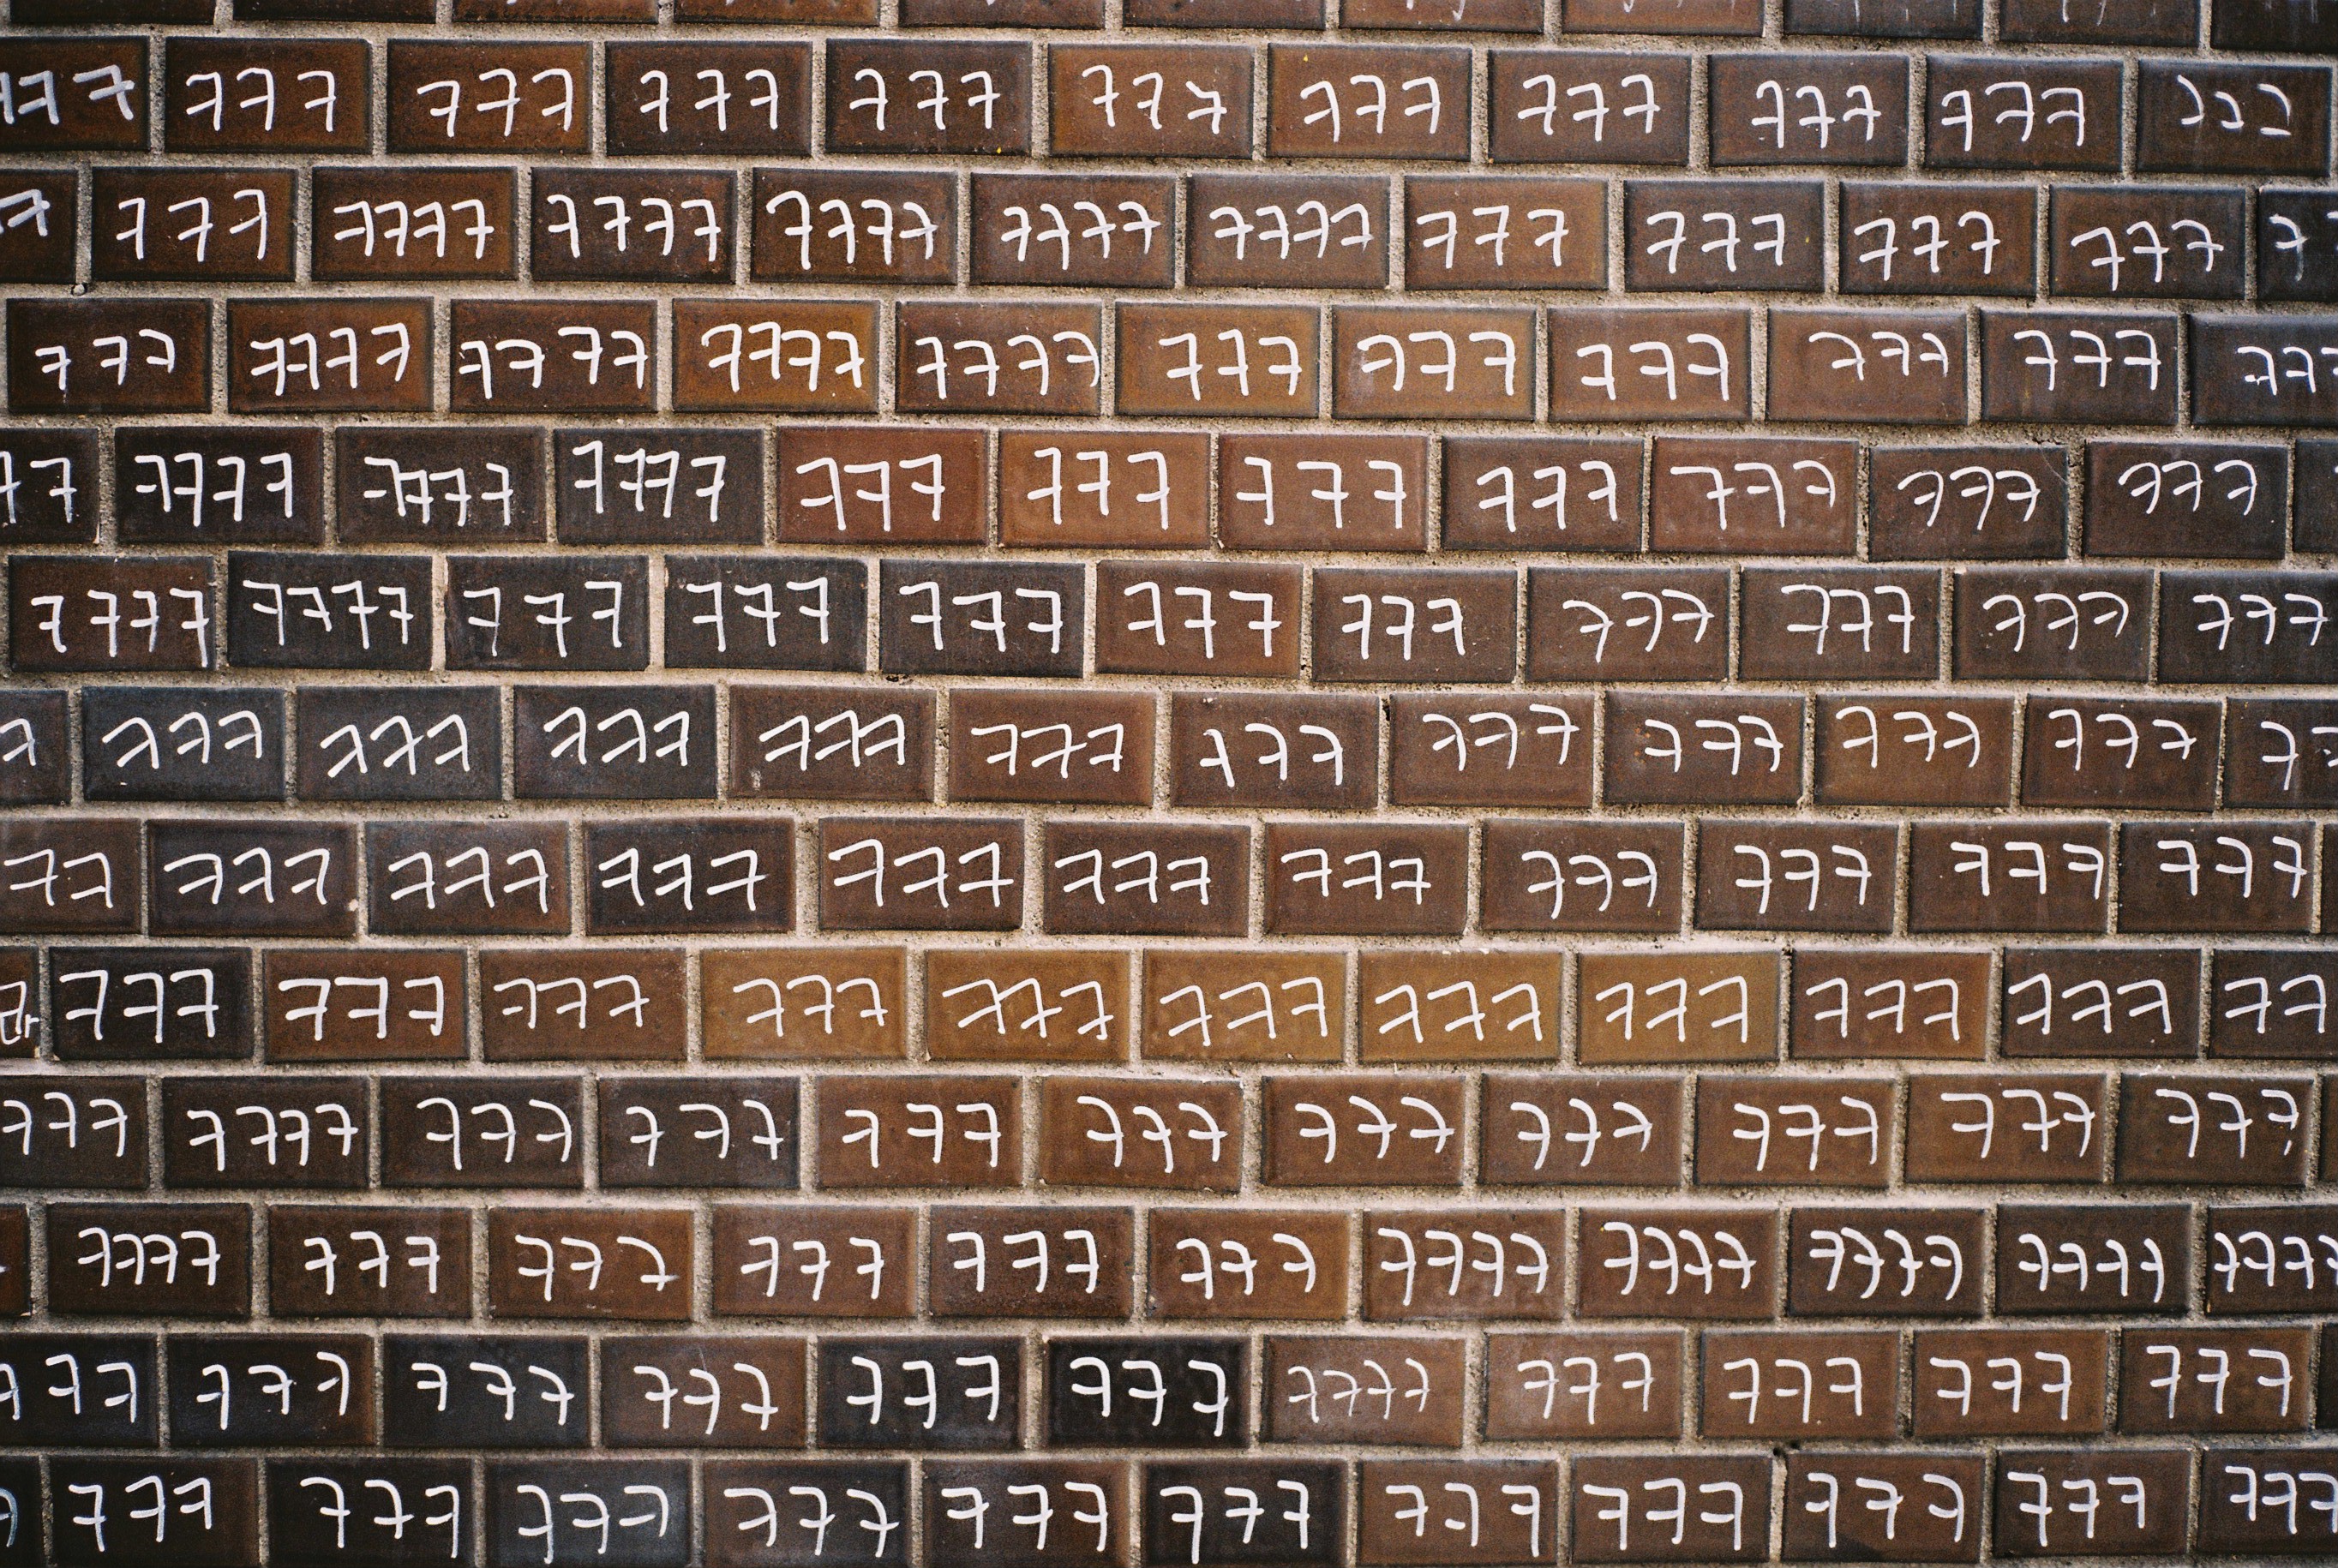 777 777 777 777 777 777 777 777 777 777 777
7 777 7777 7777 7777 7777 7777 777 777 777 777 7
777 7777 7777 7777 7777 777 777 777 777 777 777
77 7777 7777 7777 777 777 777 777 777 777 777
7777 7777 777 777 777 777 777 777 777 777 777
7 777 777 777 777 777 777 777 777 777 777 77
77 777 777 777 777 777 777 777 777 777 777
777 777 777 777 777 777 777 777 777 777 77
777 7777 777 777 777 777 777 777 777 777 777
7777 777 777 777 777 777 7777 7777 7777 7777 7777
777 777 777 777 777 777 7777 777 777 777 777
7 777 777 777 777 777 777 777 777 777 777 777